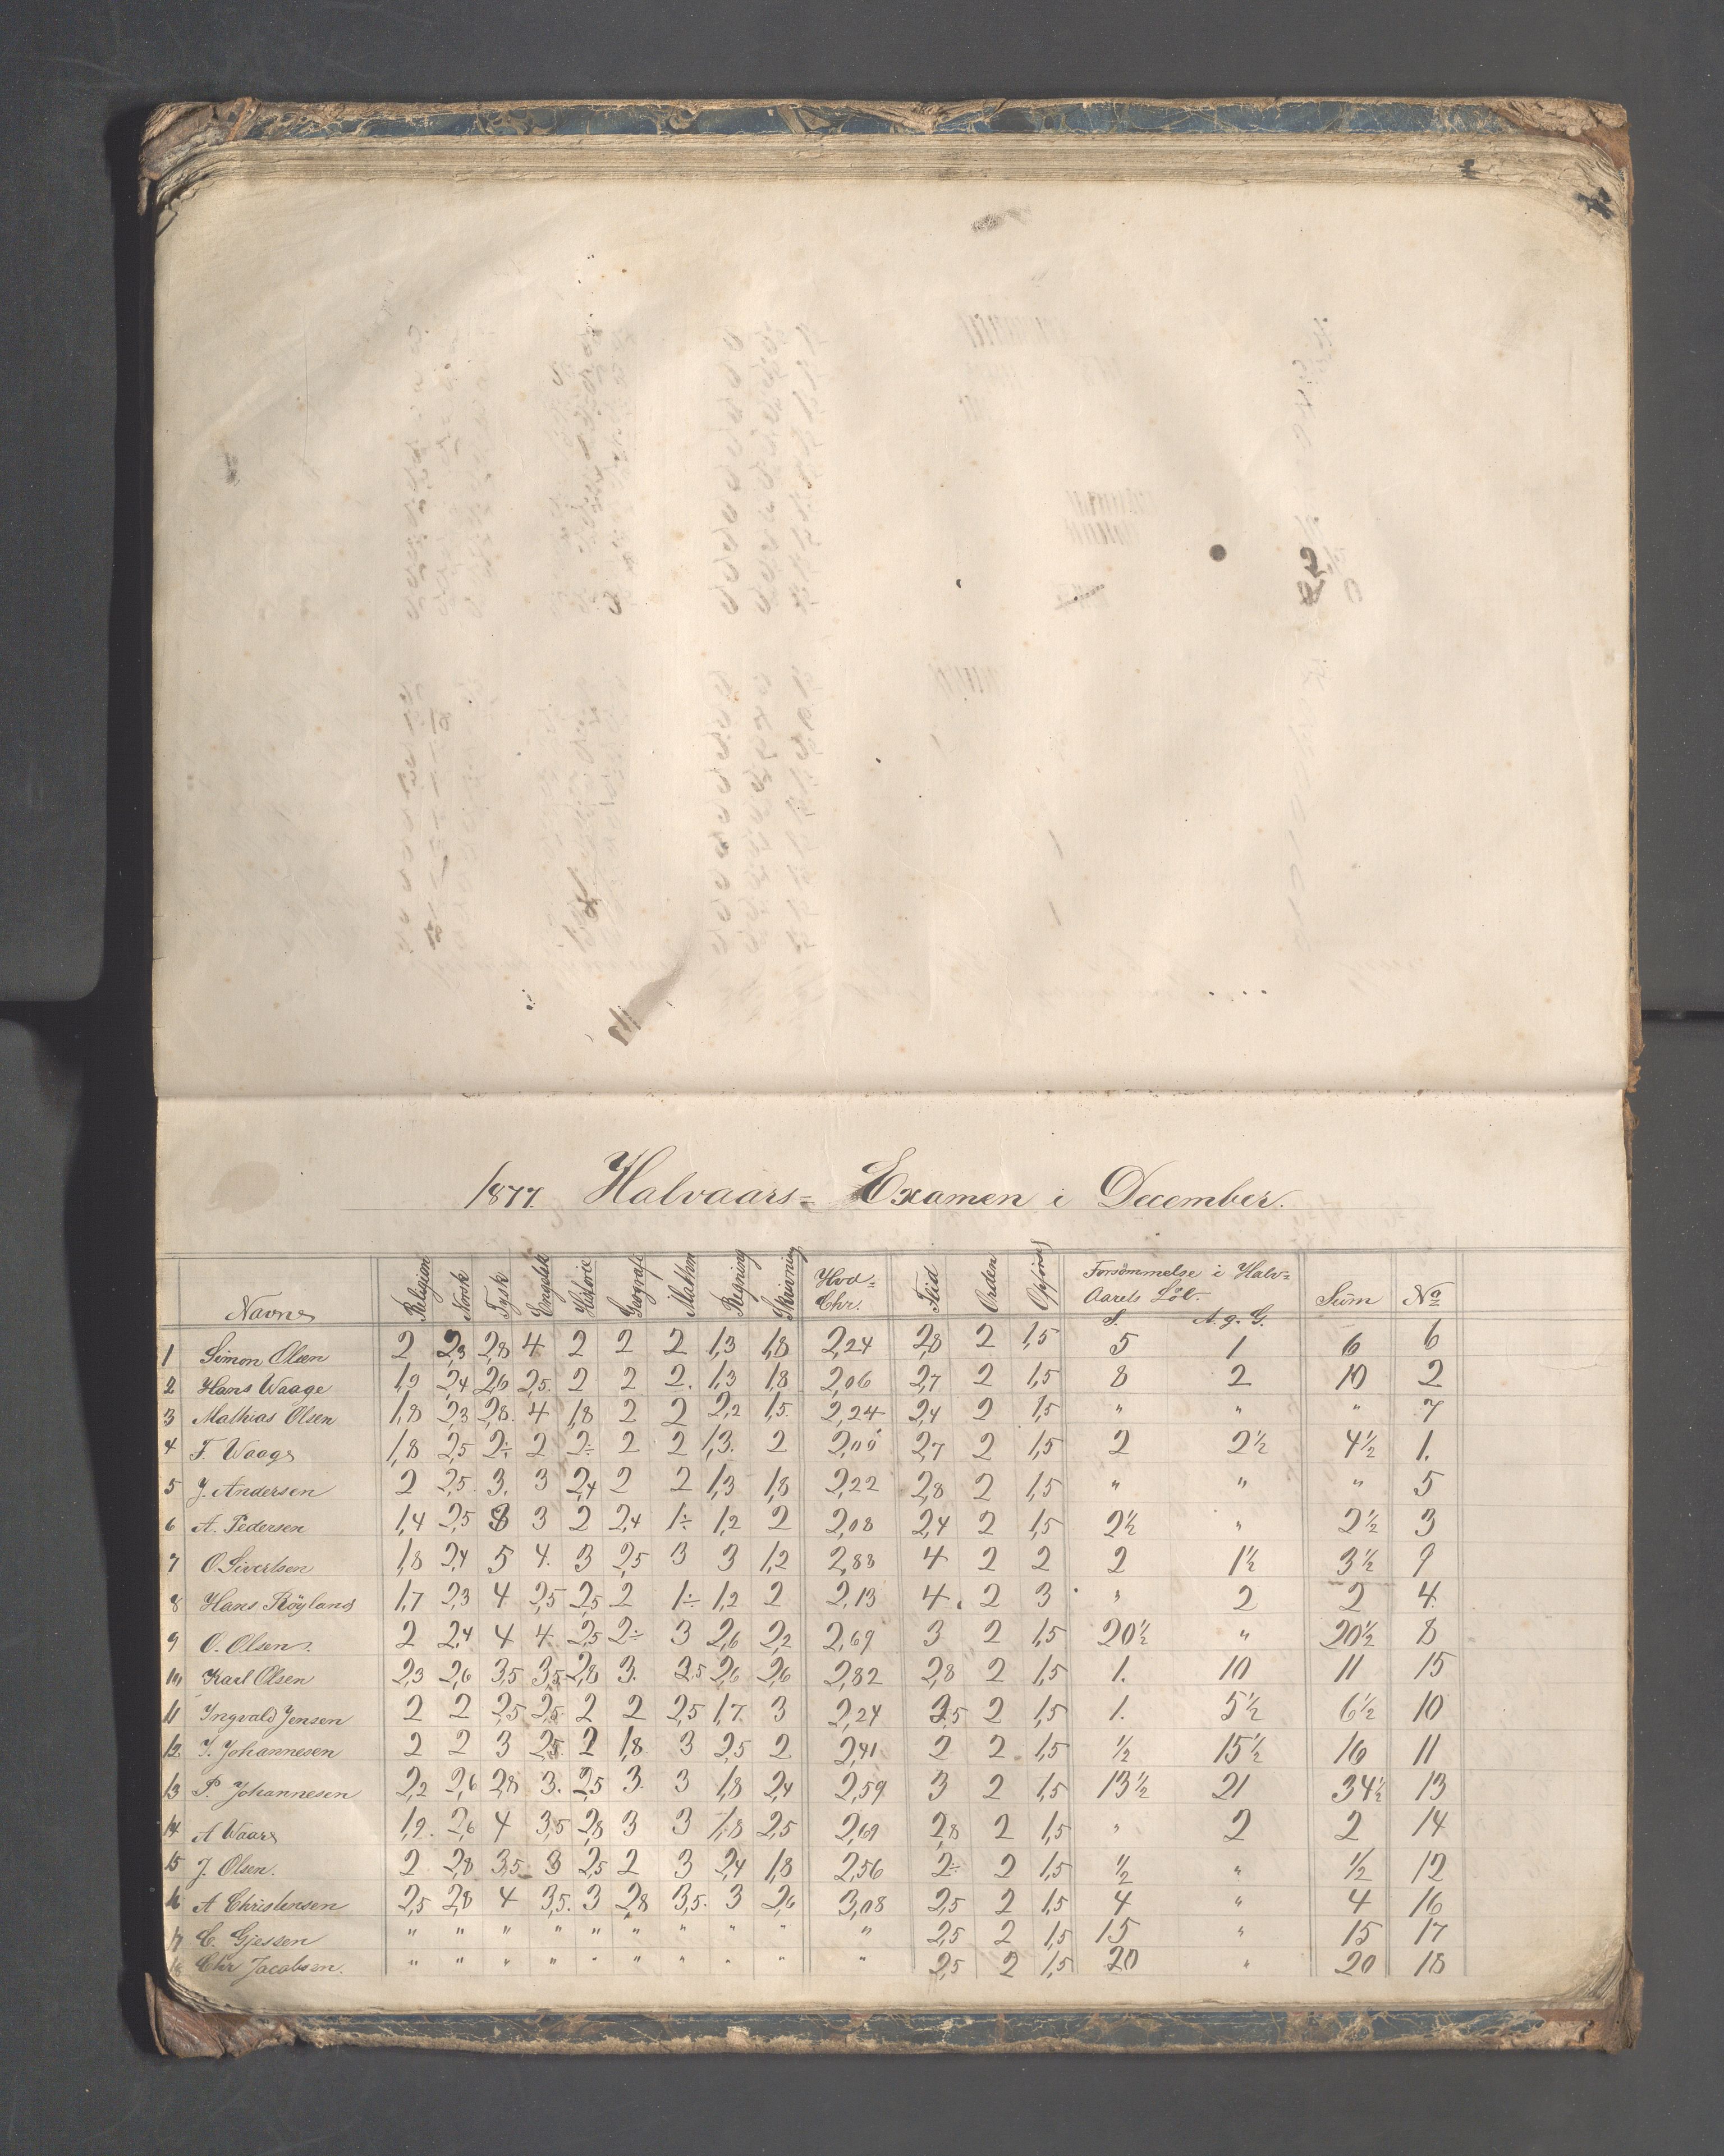 1877. Halvaars= Examen i December.
Navne Religion Norsk Tysk Engelsk Historie Geografi Mathm Regning Skrivning Hvd= Chr. Flid Orden Opførsel Forsømmelse i Halv= Sum No
Aarets Løb.
S. A. g. G.
1 Simon Olsen 2 2,3 2,8 4 2 2 2 1,3 1,8 2,24 2,8 2 1,5 5 1 6 6
2 Hans Waage 1,9 2,4 2,6 2,5. 2 2 2. 1,3 1,8 2,06 2,7 2 1,5 8 2 10 2
3 Mathias Olsen 1,8 2,3 2,8. 4 1,8 2 2 2,2 1,5. 2,24 2,4 2 1,5 " " " 7
4 F. Waage 1,8 2,5 2÷ 2 2÷ 2 2 1,3. 2 2,00 2,7 2 1,5 2 2½ 4½ 1.
5 J. Andersen 2 2,5. 3. 3 2,4 2 2 1,3 1,8 2,22 2,8 2 1,5 " " " 5
6 A. Pedersen 1,4 2,5 3 3 2 2,4 1÷ 1,2 2 2,08 2,4 2 1,5 2½ " 2½ 3
7 O. Sivertsen 1,8 2,4 5 4. 3 2,5 3 3 1,2 2,88 4 2 2 2 1½ 3½ 9
8 Hans Røyland 1,7 2,3 4 2,5 2,5 2 1÷ 1,2 2 2,13 4. 2 3 " 2 2 4.
9 O. Olsen. 2 2,4 4 4. 2,5 2÷ 3 2,6 2,2 2,69 3 2 1,5 20½ " 20½ 8
10 Karl Olsen 2,3 2,6 3,5 3,5 2,8 3. 2,5 2,6 2,6 2,82 2,8 2 1,5 1. 10 11 15
11 Yngvald Jensen 2 2 2,5 2,5. 2 2 2,5 1,7 3 2,24 2,5 2 1,5 1. 5½ 6½ 10
12 J. Johannesen 2 2 3 2,5. 2 1,8. 3 2,5 2 2,41 2 2 1,5 ½ 15½ 16 11
13 P. Johannesen 2,2 2,6 2,8 3. 2,5 3. 3 1,8 2,4 2,59 3 2 1,5 13½ 21 34½ 13
14 A Waage 1,9. 2,6 4 3,5 2,8 3 3 1,8 2,5 2,69 2,8 2 1,5 " 2 2 14
15 J. Olsen. 2 2,8 3,5 3 2,5 2 3 2,4 1,8 2,56 2÷ 2 1,5 ½ " ½ 12
16 A Christensen 2,5 2,8 4 3,5. 3 2,8 3,5. 3 2,6 3,08 2,5 2 1,5 4 " 4 16
17 C. Gjessen " " " " " " " " " " 2,5 2 1,5 15 " 15 17
18 Chr Jacobsen. " " " " " " " " " " 2,5 2 1,5 20 " 20 18